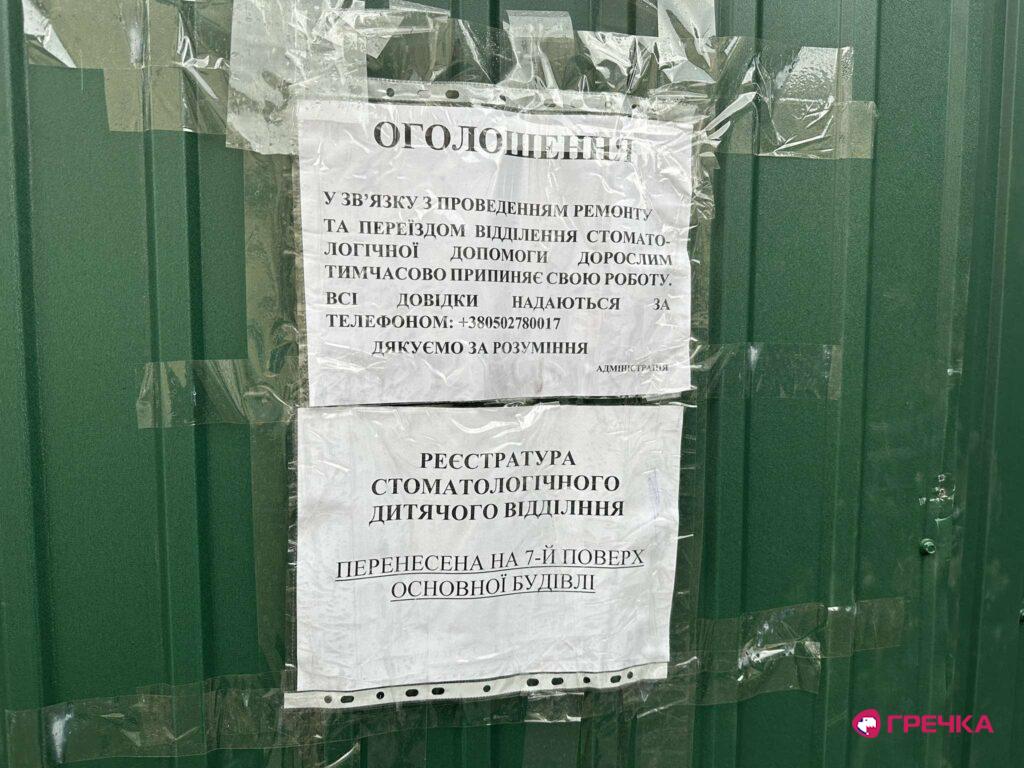 ОГОЛОШЕННЯ
У ЗВ'ЯЗКУ З ПРОВЕДЕННЯМ РЕМОНТУ
ТА ПЕРЕЇЗДОМ ВІДДІЛЕННЯ СТОМАТО-
ЛОГІЧНОЇ ДОПОМОГИ ДОРОСЛИМ
ТИМЧАСОВО ПРИПИНЯЄ СВОЮ РОБОТУ.
ВСІ ДОВІДКИ НАДАЮТЬСЯ ЗА
ТЕЛЕФОНОМ: +380502780017
ДЯКУЄМО ЗА РОЗУМІННЯ
АДМІНІСТРАЦІЯ
РЕЄСТРАТУРА
СТОМАТОЛОГІЧНОГО
ДИТЯЧОГО ВІДДІЛННЯ
ПЕРЕНЕСЕНА НА 7-Й ПОВЕРХ
ОСНОВНОЇ БУДІВЛІ
ГРЕЧКА